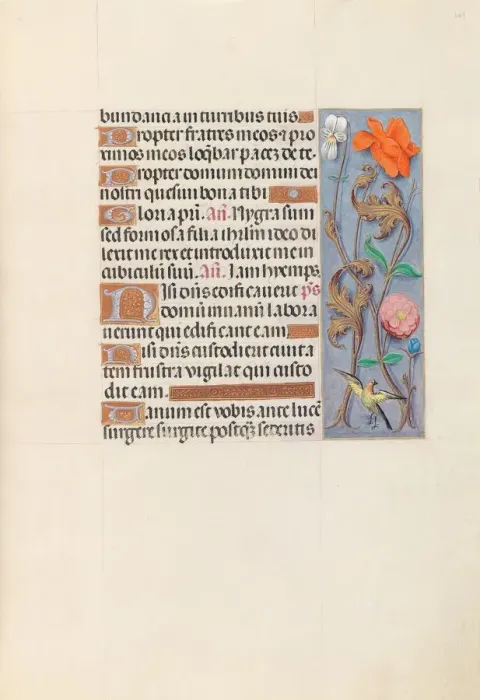 bundancia in turribus tuis.
Propter fratres meos ⁊ pro
ximos meos loq̄bar pacez de te.
Propter domum domini dei
nostri quesiui bona tibi
Gloria pr̄i. An̄. Nygra sum
sed formosa filia ihrlm ideo di
lexit me rex et introduxit me in
cubiculū suū. An̄. Iam hyemps
Nisi dn̄s edificauerit p̄s
domū in uanū labora
uerunt qui edificant eam
Nisi dn̄s custodierit ciuita
tem frustra vigilat qui custo
dit eam.
Uanum est vobis ante lucē
surgere surgite postq̄ sederitis